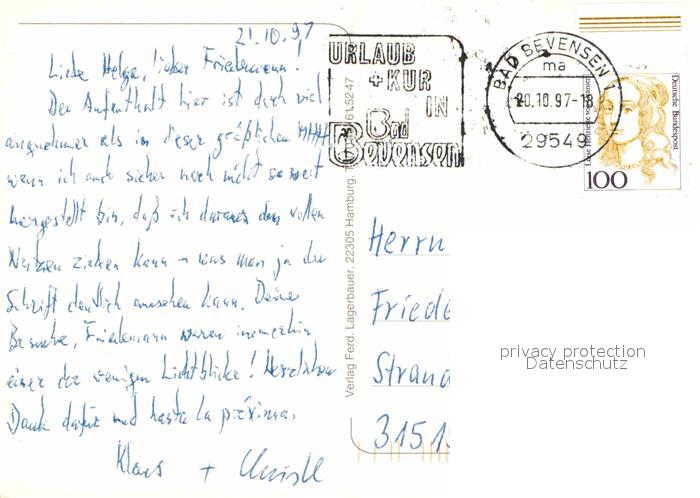 21.10.97
Liebe Helga, lieber Friedemann!
Der Aufenthalt hier ist doch viel
angenehmer als in dieser gräßlichen MHH
wenn ich auch sicher noch nicht so weit
hergestellt bin, daß ich daraus den vollen
Nutzen ziehen kann – was man ja der
Schrift deutlich ansehen kann. Deine
Besuche, Friedemann waren immerhin
einer der wenigen Lichtblicke! Herzlichen
Dank dafür und hasta la próxima.
Klaus + Christl
Verlag Ferd. Lagerbauer, 22305 Hamburg,
61 52 47
URLAUB
+ KUR
IN
Bad
Bevensen
BAD BEVENSEN 1
ma
20.10.97-18
29549
Deutsche Bundespost
100
Herrn
Friede
Strand
3151
privacy protection
Datenschutz